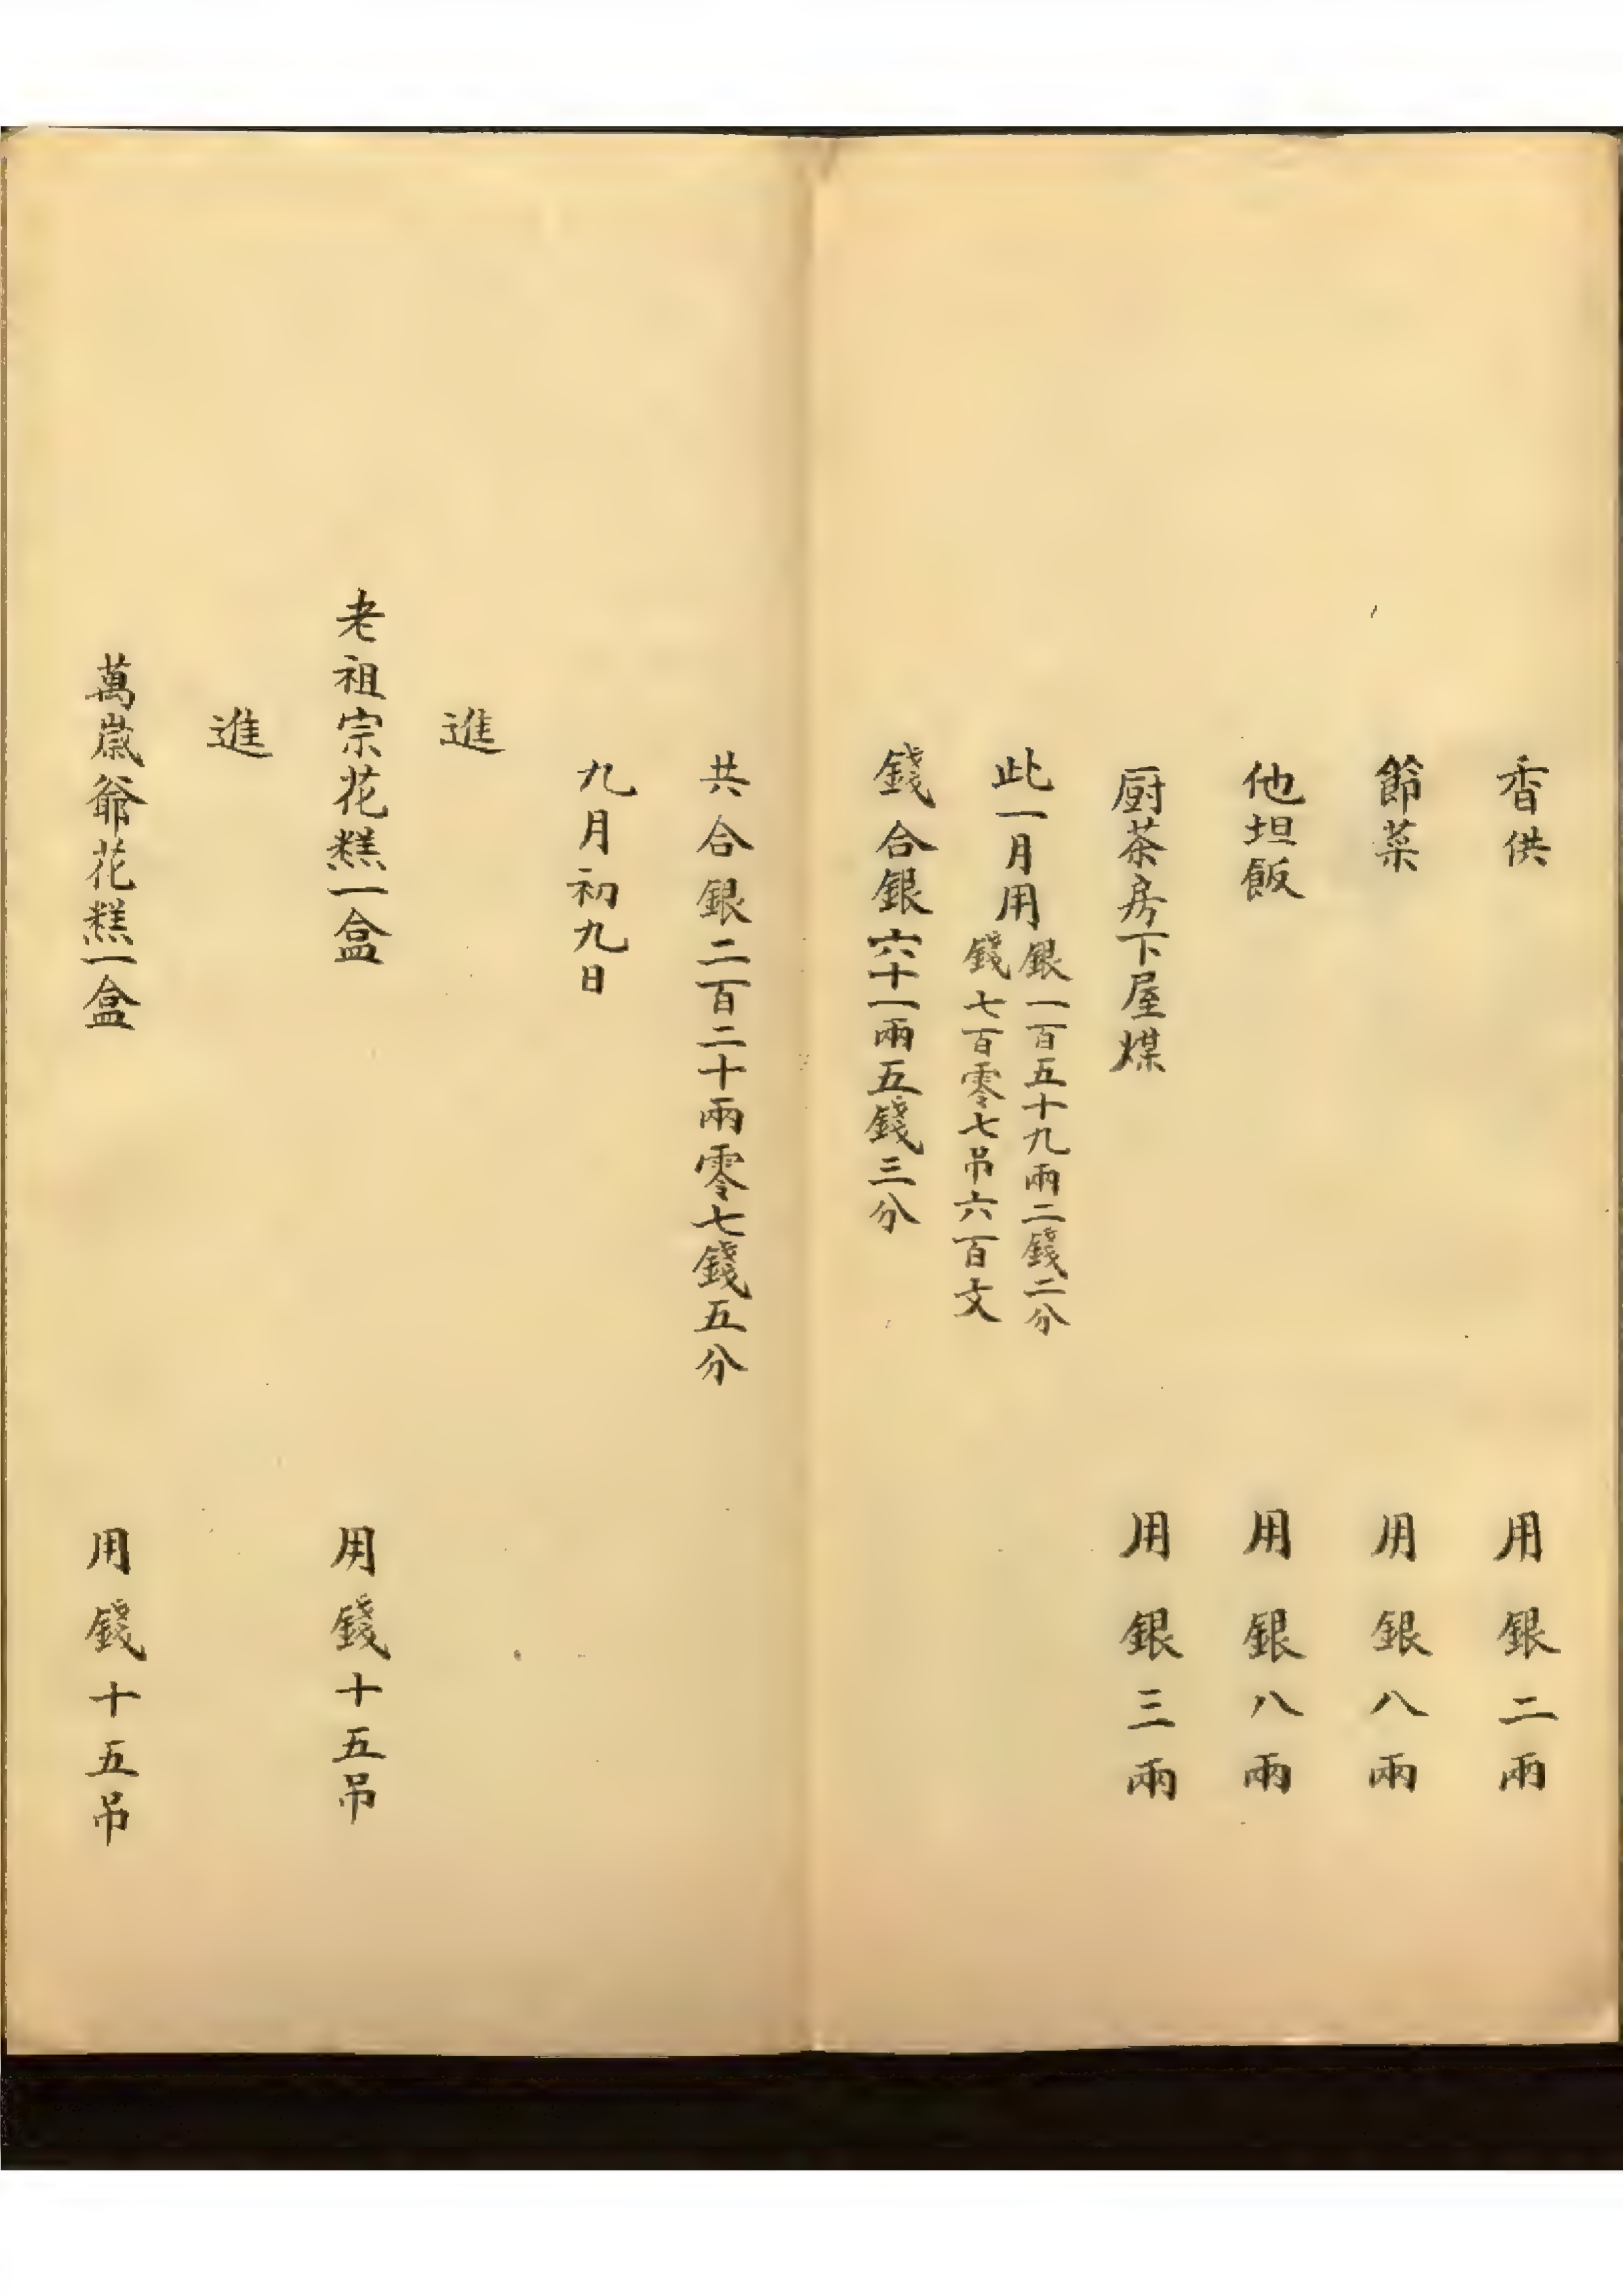 香供 用銀二兩
節菜 用銀八兩
他坦飯 用銀八兩
厨茶房下屋煤 用銀三兩
此一月用銀一百五十九兩二錢二分
錢七百零七吊六百文
錢合銀六十一兩五錢三分
共合銀二百二十兩零七錢五分
九月初九日
進
老祖宗花糕一盒 用錢十五吊
進
萬歲爺花糕一盒 用錢十五吊